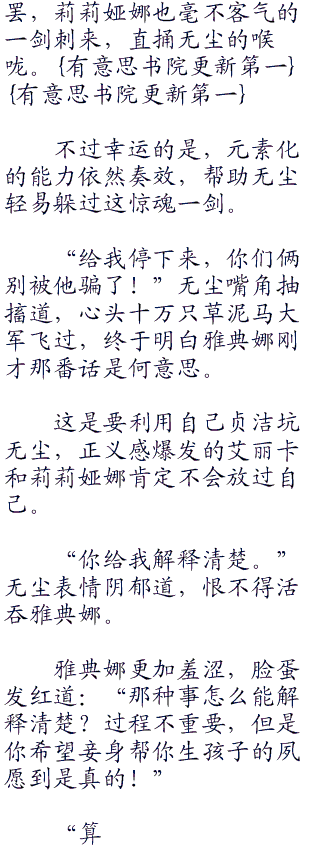 罢，莉莉娅娜也毫不客气的
一剑刺来，直捅无尘的喉
咙。{有意思书院更新第一}
{有意思书院更新第一}
不过幸运的是，元素化
的能力依然奏效，帮助无尘
轻易躲过这惊魂一剑。
“给我停下来，你们俩
别被他骗了！”无尘嘴角抽
搐道，心头十万只草泥马大
军飞过，终于明白雅典娜刚
才那番话是何意思。
这是要利用自己贞洁坑
无尘，正义感爆发的艾丽卡
和莉莉娅娜肯定不会放过自
己。
“你给我解释清楚。”
无尘表情阴郁道，恨不得活
吞雅典娜。
雅典娜更加羞涩，脸蛋
发红道：“那种事怎么能解
释清楚？过程不重要，但是
你希望妾身帮你生孩子的夙
愿到是真的！”
“算